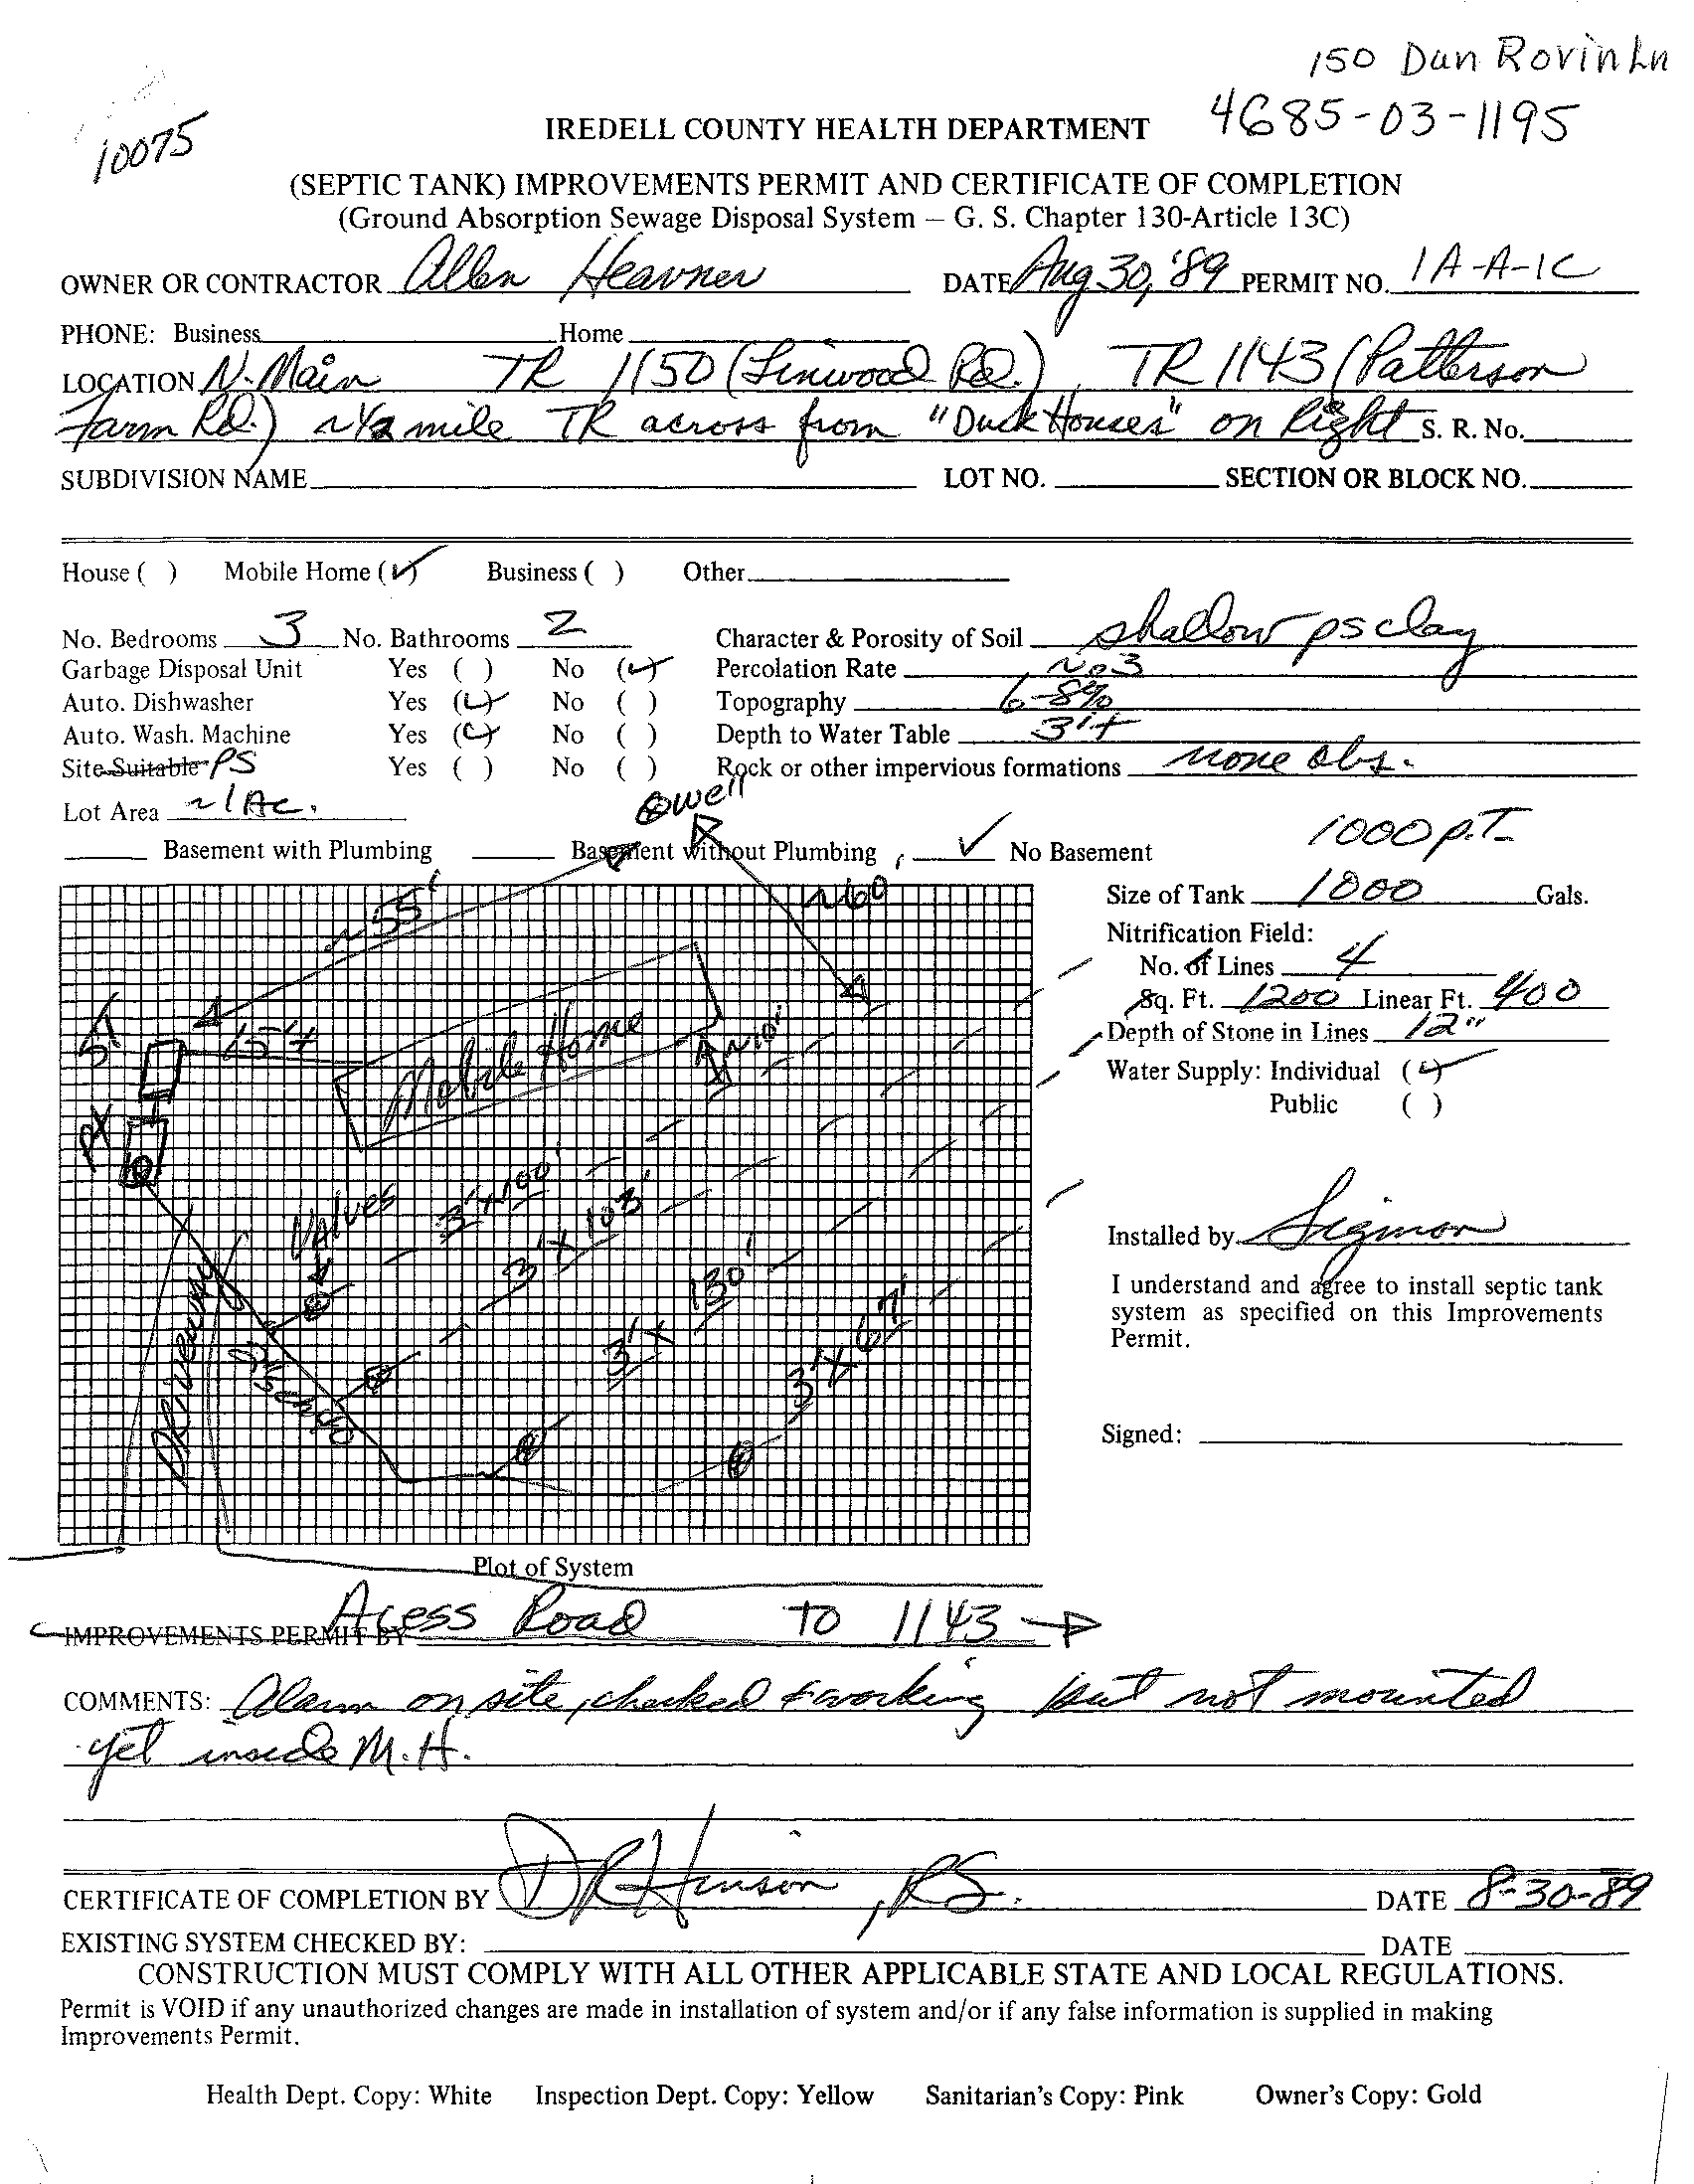 150 Dan Rovin Ln
4685-03-1195
10075
IREDELL COUNTY HEALTH DEPARTMENT
(SEPTIC TANK) IMPROVEMENTS PERMIT AND CERTIFICATE OF COMPLETION
(Ground Absorption Sewage Disposal System – G. S. Chapter 130-Article 13C)
OWNER OR CONTRACTOR Allen Heavner DATE Aug 30, '89 PERMIT NO. 1A-A-1C
PHONE: Business Home
LOCATION N. Main TR 1150 (Linwood Rd.), TR 1143 (Patterson
Farm Rd.) ~1/2 mile TR across from "Duck Houses" on Right S. R. No.
SUBDIVISION NAME LOT NO. SECTION OR BLOCK NO.
House ( ) Mobile Home (✓) Business ( ) Other
No. Bedrooms 3 No. Bathrooms 2 Character & Porosity of Soil shallow ps clay
Garbage Disposal Unit Yes ( ) No (✓) Percolation Rate No 3
Auto. Dishwasher Yes (✓) No ( ) Topography 6-8%
Auto. Wash. Machine Yes (✓) No ( ) Depth to Water Table 3'+
Site Suitable PS Yes ( ) No ( ) Rock or other impervious formations none obs.
Lot Area ~1 Ac. well
Basement with Plumbing Basement without Plumbing ✓ No Basement
1000 P.T.
Size of Tank 1000 Gals.
Nitrification Field:
No. of Lines 4
Sq. Ft. 1200 Linear Ft. 400
Depth of Stone in Lines 12"
Water Supply: Individual (✓)
Public ( )
Installed by Sigmon
I understand and agree to install septic tank
system as specified on this Improvements
Permit.
Signed:
~55'
~60'
ST
15'+
Mobile Home
~10'
PT
Valves
3'x100'
3'x103'
3'x130'
3'x67'
Driveway
Plot of System
Acess Road TO 1143
IMPROVEMENTS PERMIT BY
COMMENTS: Alarm on site, checked & working but not mounted
yet inside M.H.
CERTIFICATE OF COMPLETION BY DR Hinson, RS. DATE 8-30-89
EXISTING SYSTEM CHECKED BY: DATE
CONSTRUCTION MUST COMPLY WITH ALL OTHER APPLICABLE STATE AND LOCAL REGULATIONS.
Permit is VOID if any unauthorized changes are made in installation of system and/or if any false information is supplied in making
Improvements Permit.
Health Dept. Copy: White Inspection Dept. Copy: Yellow Sanitarian's Copy: Pink Owner's Copy: Gold